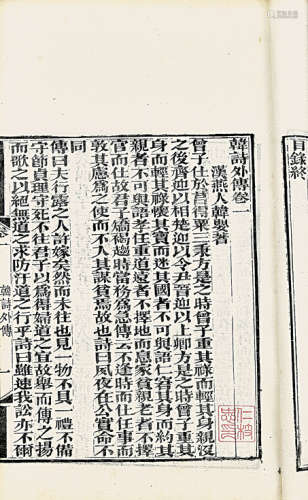 目錄終
韓詩外傳卷一
漢燕人韓嬰著
曾子仕於莒得粟三秉方是之時曾子重其祿而輕其身親沒
之後齊迎以相楚迎以令尹晉迎以上卿方是之時曾子重其
身而輕其祿懷其寶而迷其國者不可與語仁窘其身而約其
親者不可與語孝任重道遠者不擇地而息家貧親老者不擇
官而仕故君子橋褐趨時當務爲急傳云不逢時而仕任事而
敦其慮爲之使而不入其謀貧焉故也詩曰夙夜在公實命不
同
傳曰夫行露之人許嫁矣然而未往也見一物不具一禮不備
守節貞理守死不往君子以爲得婦道之宜故舉而傳之揚
而歌之以絕無道之求防汙道之行乎詩曰雖速我訟亦不爾
韓詩外傳
一